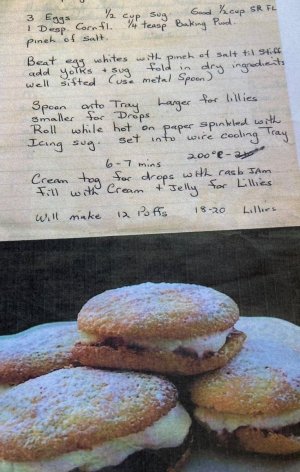 3 Eggs ½ cup sug Good ½ cup SR FL
1 Desp. Cornfl. ¼ teasp Baking Pwd.
pinch of salt.
Beat egg whites with pinch of salt til stiff
add yolks + sug fold in dry ingredients
well sifted (use metal Spoon)
Spoon onto Tray Larger for lillies
smaller for Drops.
Roll while hot on paper spinkled with
Icing sug. set into wire cooling Tray
6-7 mins 200°C
Cream tog for drops with rasb JAm
Fill with Cream + Jelly for Lillies
Will make 12 Puffs 18-20 Lillies